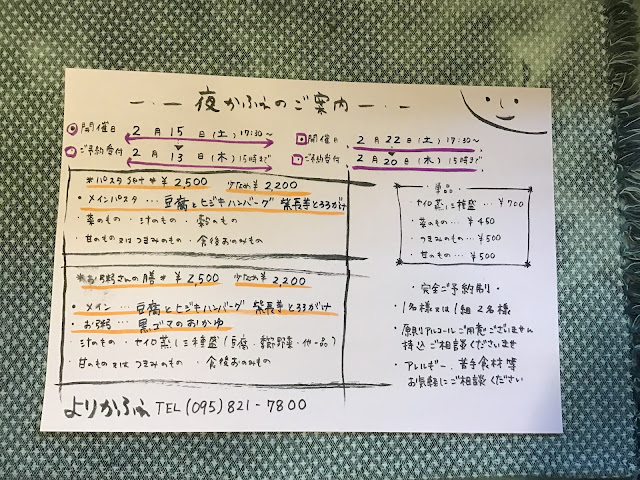 夜かふぇのご案内
開催日 2月15日(土)17:30~
ご予約受付 2月13日(木)15時まで
開催日 2月22日(土)17:30~
ご予約受付 2月20日(木)15時まで
*パスタset* ¥2,500 少なめ¥2,200
・メインパスタ…豆腐とヒジキハンバーグ 紫長芋とろろがけ
・菜のもの・汁のもの・穀のもの
・甘のもの又はつまみのもの・食後おのみもの
*お粥さんの膳* ¥2,500 少なめ¥2,200
・メイン…豆腐とヒジキハンバーグ 紫長芋とろろがけ
・お粥…黒ゴマのおかゆ
・汁のもの・セイロ蒸し三種盛(豆腐・野菜・他一品)
・甘のもの又はつまみのもの・食後おのみもの
単品
・セイロ蒸し三種盛…¥700
・菜のもの…¥450
・つまみのもの…¥500
・甘のもの…¥500
・完全ご予約制・
・1名様又は1組2名様
・原則アルコールご用意ございません
持込ご相談くださいませ
・アレルギー、苦手食材等
お気軽にご相談ください
よりかふぇ TEL(095)821-7800